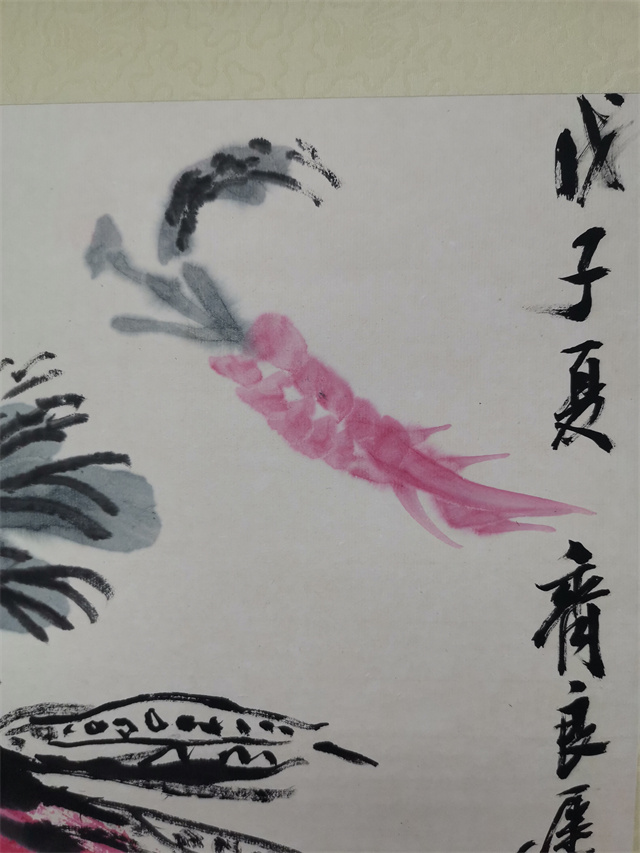 戊子夏 齊良遲